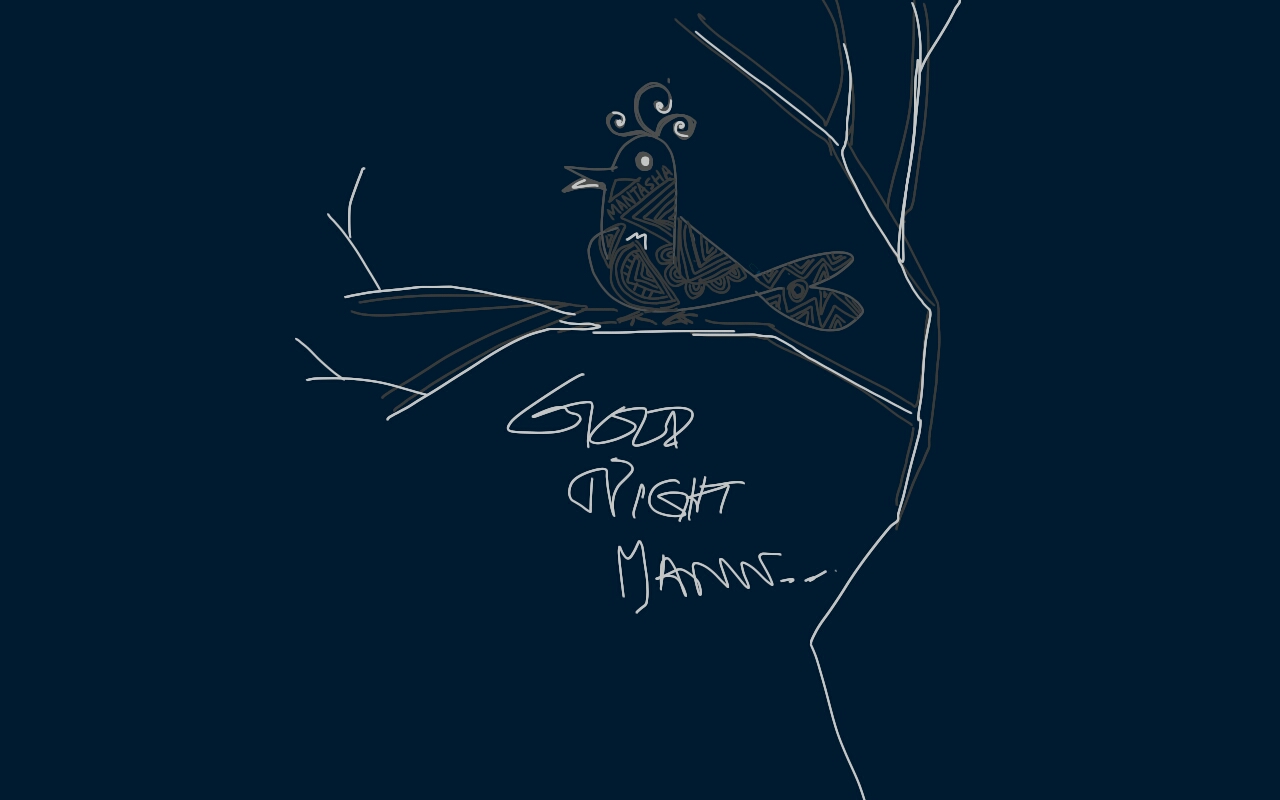 MANTASHA
M
GOOD
NIGHT
MANNN...